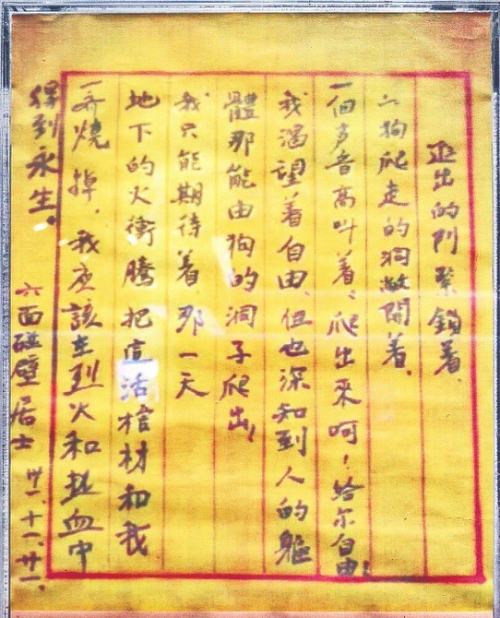 进出的门緊鎖着、
狗爬走的洞敞開着、
一個声音高叫着、爬出來呵！給尔自由！
我渴望着自由、但也深知到人的軀
體那能由狗的洞子爬出！
我只能期待着、那一天
地下的火衝騰把這活棺材和我
一齊燒掉，我应該在烈火和热血中
得到永生。
六面碰壁居士 卅一、十一、廿一、